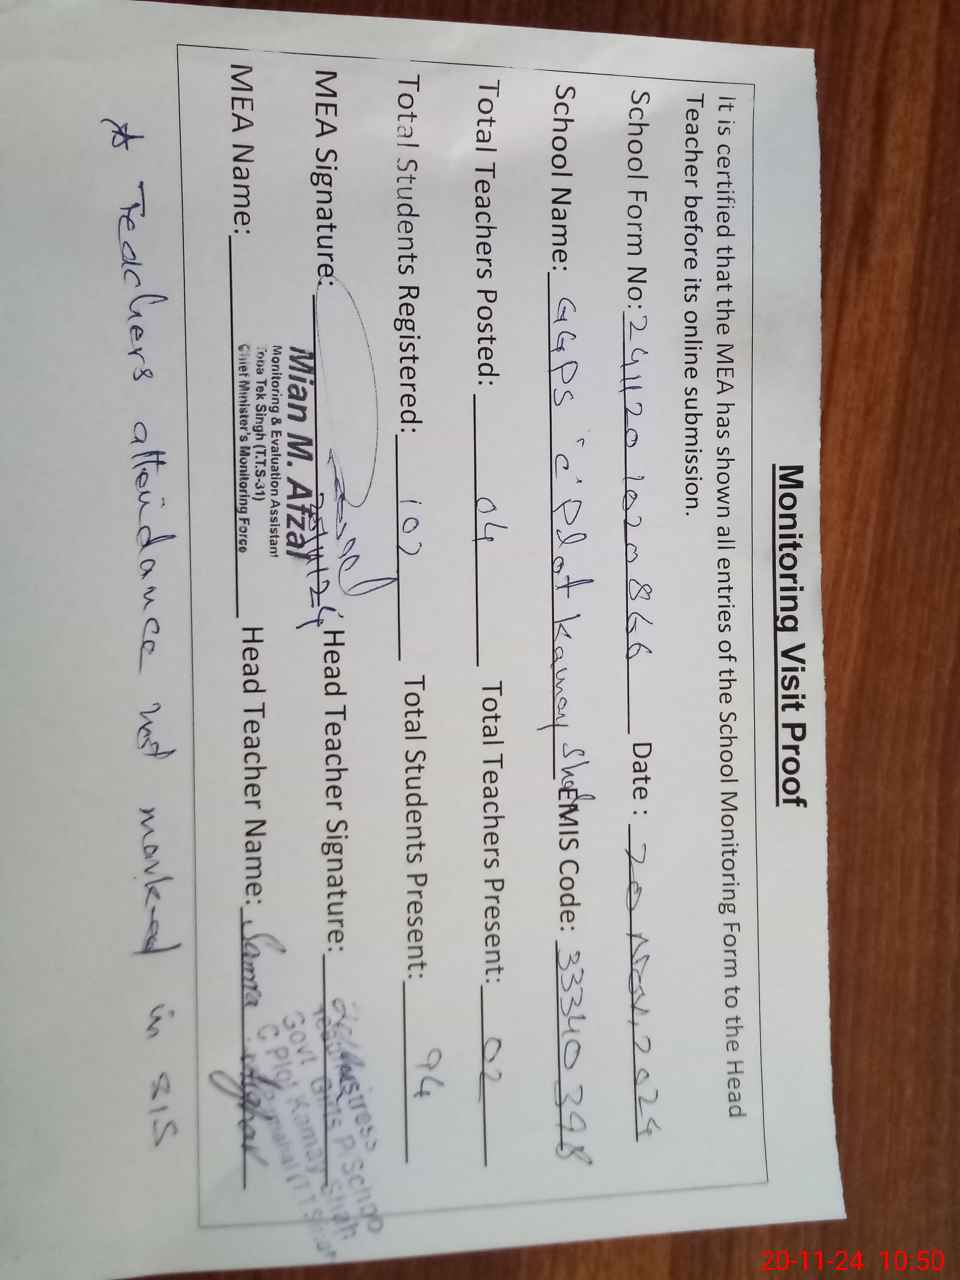 Monitoring Visit Proof
It is certified that the MEA has shown all entries of the School Monitoring Form to the Head
Teacher before its online submission.
School Form No: 241120 1020866 Date : 20 Nov, 2024
School Name: GGPS 'C' Plot Kamay Shah EMIS Code: 33340398
Total Teachers Posted: 04 Total Teachers Present: 02
Total Students Registered: 102 Total Students Present: 94
MEA Signature: 20/11/24 Head Teacher Signature:
Mian M. Afzal
Monitoring & Evaluation Assistant
Toba Tek Singh (T.T.S-31)
Chief Minister's Monitoring Force
MEA Name: Head Teacher Name: Samra Asghar
Govt Girls P/School
C Plot Kamay Shah
Teachers attendance not marked in SIS
20-11-24 10:50